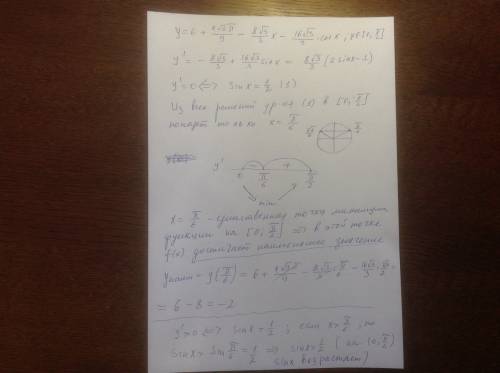 y = 6 + 4√3π/9 − 8√3/3 x − 16√3/3 cos x, x∈[0, π/2]
y' = − 8√3/3 + 16√3/3 sin x = 8√3/3 (2 sin x − 1)
y' = 0 ⟺ sin x = 1/2 (1)
Из всех решений ур-я (1) в [0, π/2]
попадет только x = π/6
5π/6 π/6
y' − +
0 π/6 π/2
y min
x = π/6 - единственная точка минимума
функции на [0, π/2] ⟹ в этой точке
f(x) достигает наименьшее значение
yнаим = y(π/6) = 6 + 4√3π/9 − 8√3/3 · π/6 − 16√3/3 · √3/2 =
= 6 − 8 = −2
y' > 0 ⟺ sin x > 1/2 ; если x > π/6, то
sin x > sin π/6 = 1/2 ⟹ sin x > 1/2 ( на [0, π/2]
sin x возрастает)